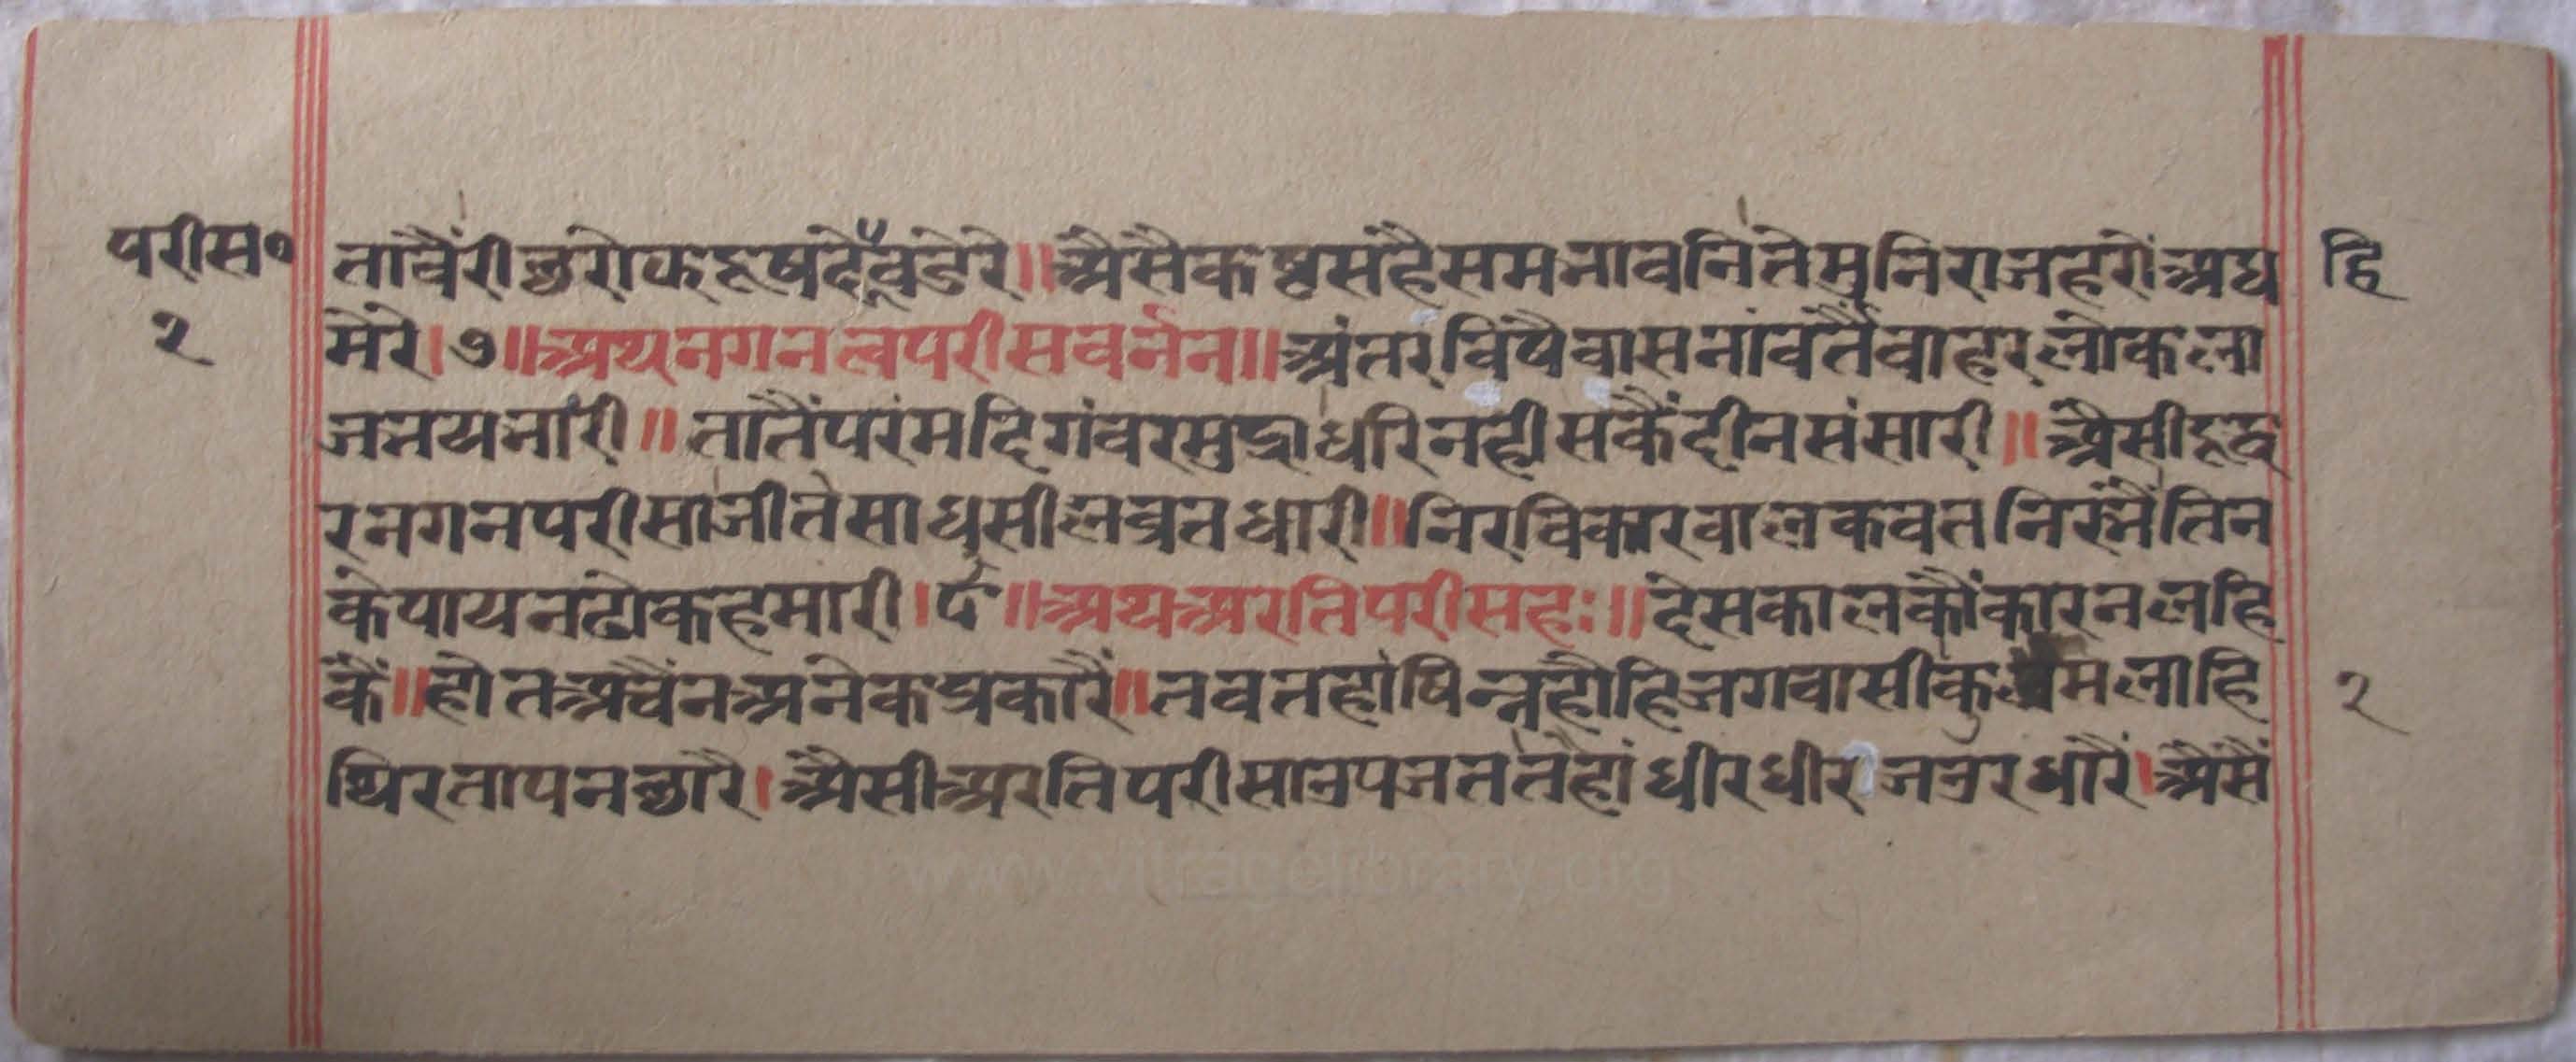 परीस० तावैंरी छरोकहूषदेंवडेरे॥ अैसैकष्टसंहैसमभावनितेमुनिराजहरोंअघ हि
२ मेरे।७॥अथनगनत्वपरीसवर्नन॥अंतरविषैवासनांवर्तैवाहरलोकला
जभयभारी॥ तातैंपरंमदिगंवरमुद्राधरिनहीसकैंदीनसंसारी॥ अैसीदूद्ध
रनगनपरीसाजीतेसाधुसीलव्रतधारी॥निरविकारवालकवतनिरभैंतिन
केपायनढोकहमारी।८॥अथअरतिपरीसहः॥देसकालकौंकारनलहि
कैं॥होतअचैंनअनेकप्रकारैं॥तवतहांषिन्नहोहिजगवासीकुलमलाहि २
थिरतापनछारै।अैसीअरतिपरीसाउपजततहांधीरधीरजउरधारैं।अैसैं
www.vitragelibrary.org